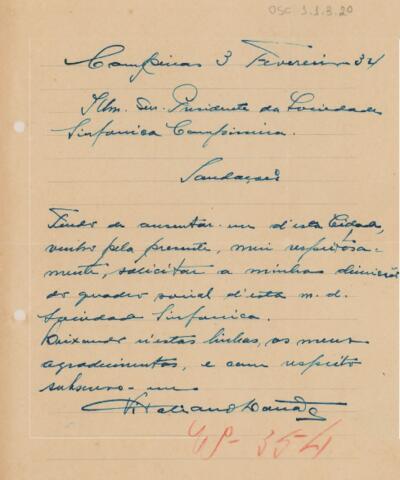 OSC 1.1.3.20
Campinas 3 Fevereiro 34
Illm. Snr. Presidente da Sociedade
Sinfonica Campineira.
Saudações
Tendo de ausentar-me d'esta Cidade,
venho pela presente, mui respeitosa-
mente, solicitar a minha demissão
do quadro social d'esta m. d.
Sociedade Sinfonica.
Deixando n'estas linhas, os meus
agradecimentos, e com respeito
subscrevo-me
354